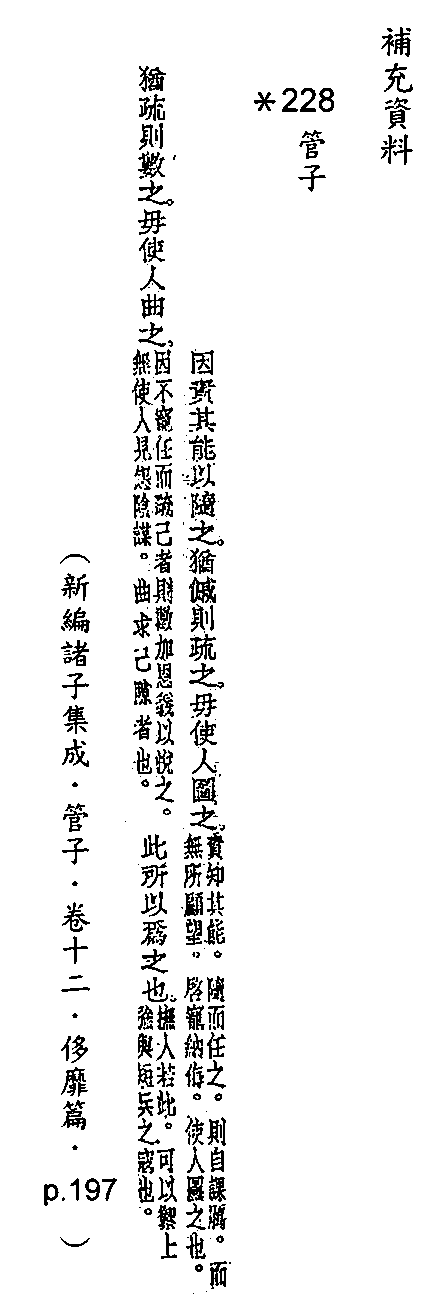 補充資料
*228 管子
因責其能以隨之。猶傶則疏之。毋使人圖之。
責知其能。隨而任之。則自課厲。而
無所顧望。啓寵納侮。使人圖之也。
猶疏則數之。毋使人曲之。
因不寵任而疏己者則數加恩義以悅之。
無使人見怨陰謀。曲求己隙者也。
此所以爲之也。
撫人若此。可以禦上
強與短兵之寇也。
(新編諸子集成・管子・卷十二・侈靡篇・p.197)